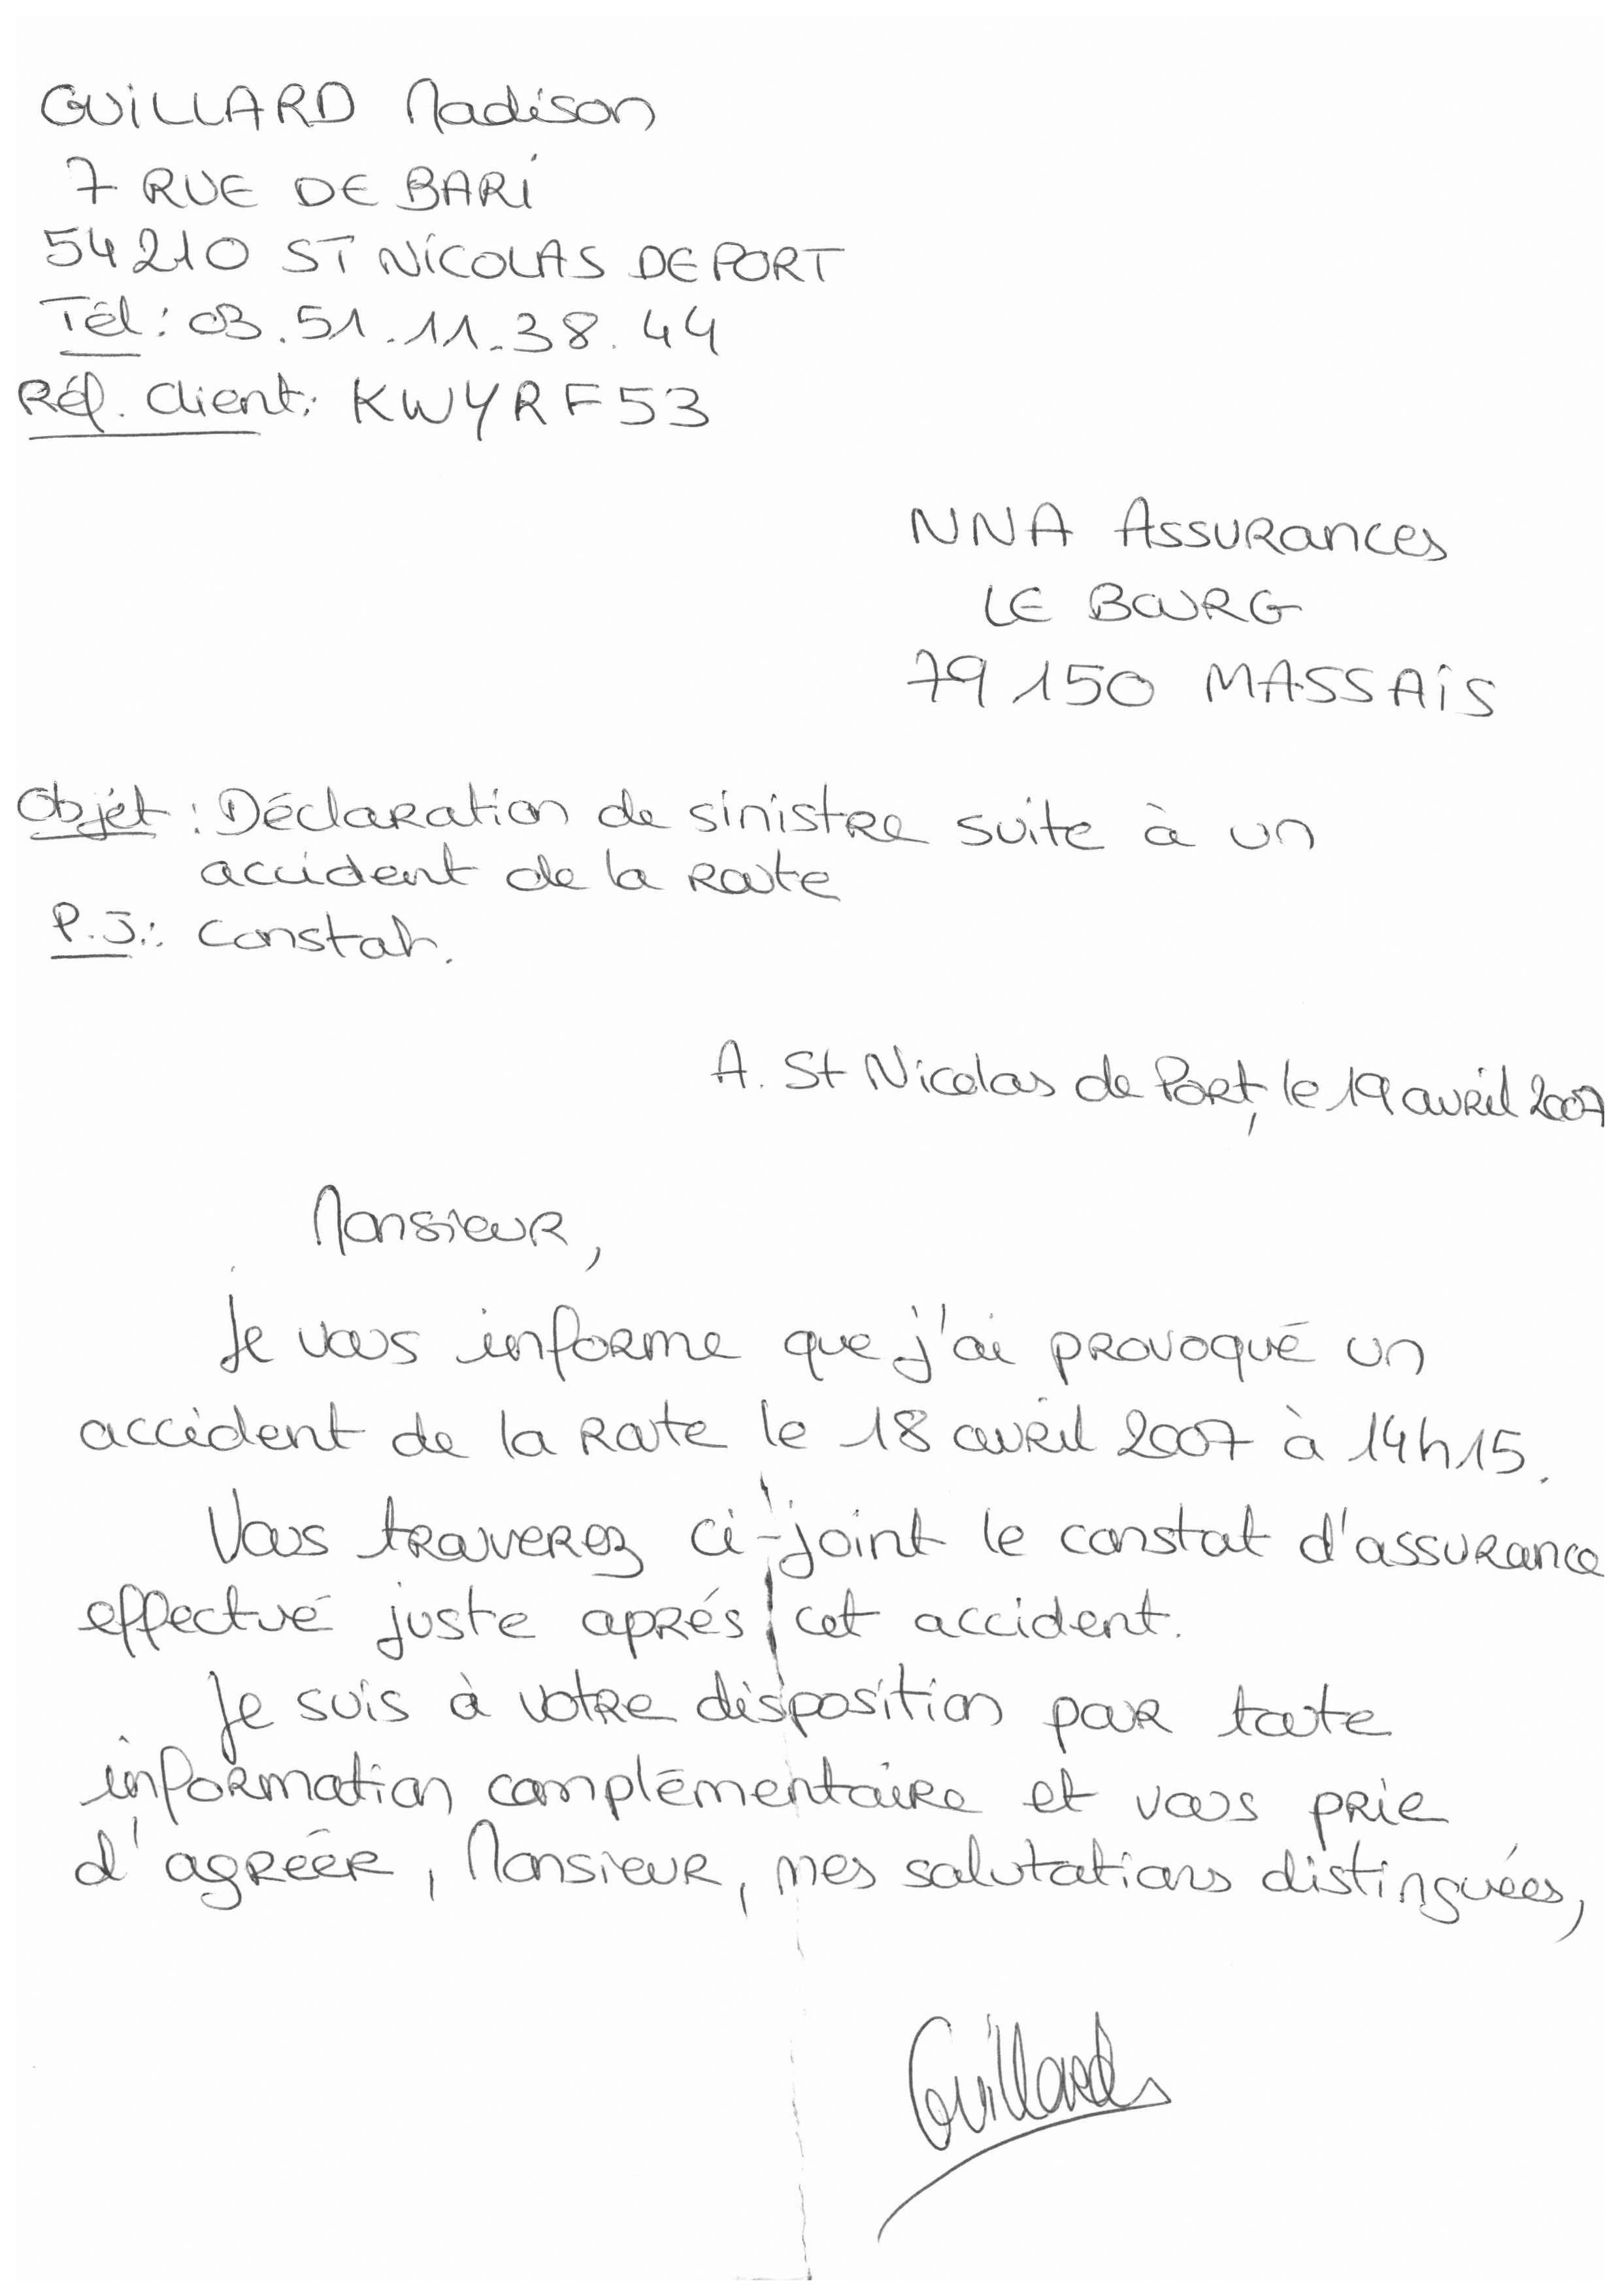 GUILLARD Madison
7 RUE DE BARI
54210 ST NICOLAS DE PORT
Tél : 03.51.11.38.44
Réf. Client : KWYRF53
NNA Assurances
LE BOURG
79150 MASSAIS
Objet : Déclaration de sinistre suite à un
accident de la route
P.J.: Constat.
A. St Nicolas de Port, le 19 avril 2007
Monsieur,
Je vous informe que j'ai provoqué un
accident de la route le 18 avril 2007 à 14h15.
Vous trouverez ci-joint le constat d'assurance
effectué juste aprés cet accident.
Je suis à votre disposition pour toute
information complémentaire et vous prie
d'agréer, Monsieur, mes salutations distinguées,
Guillard